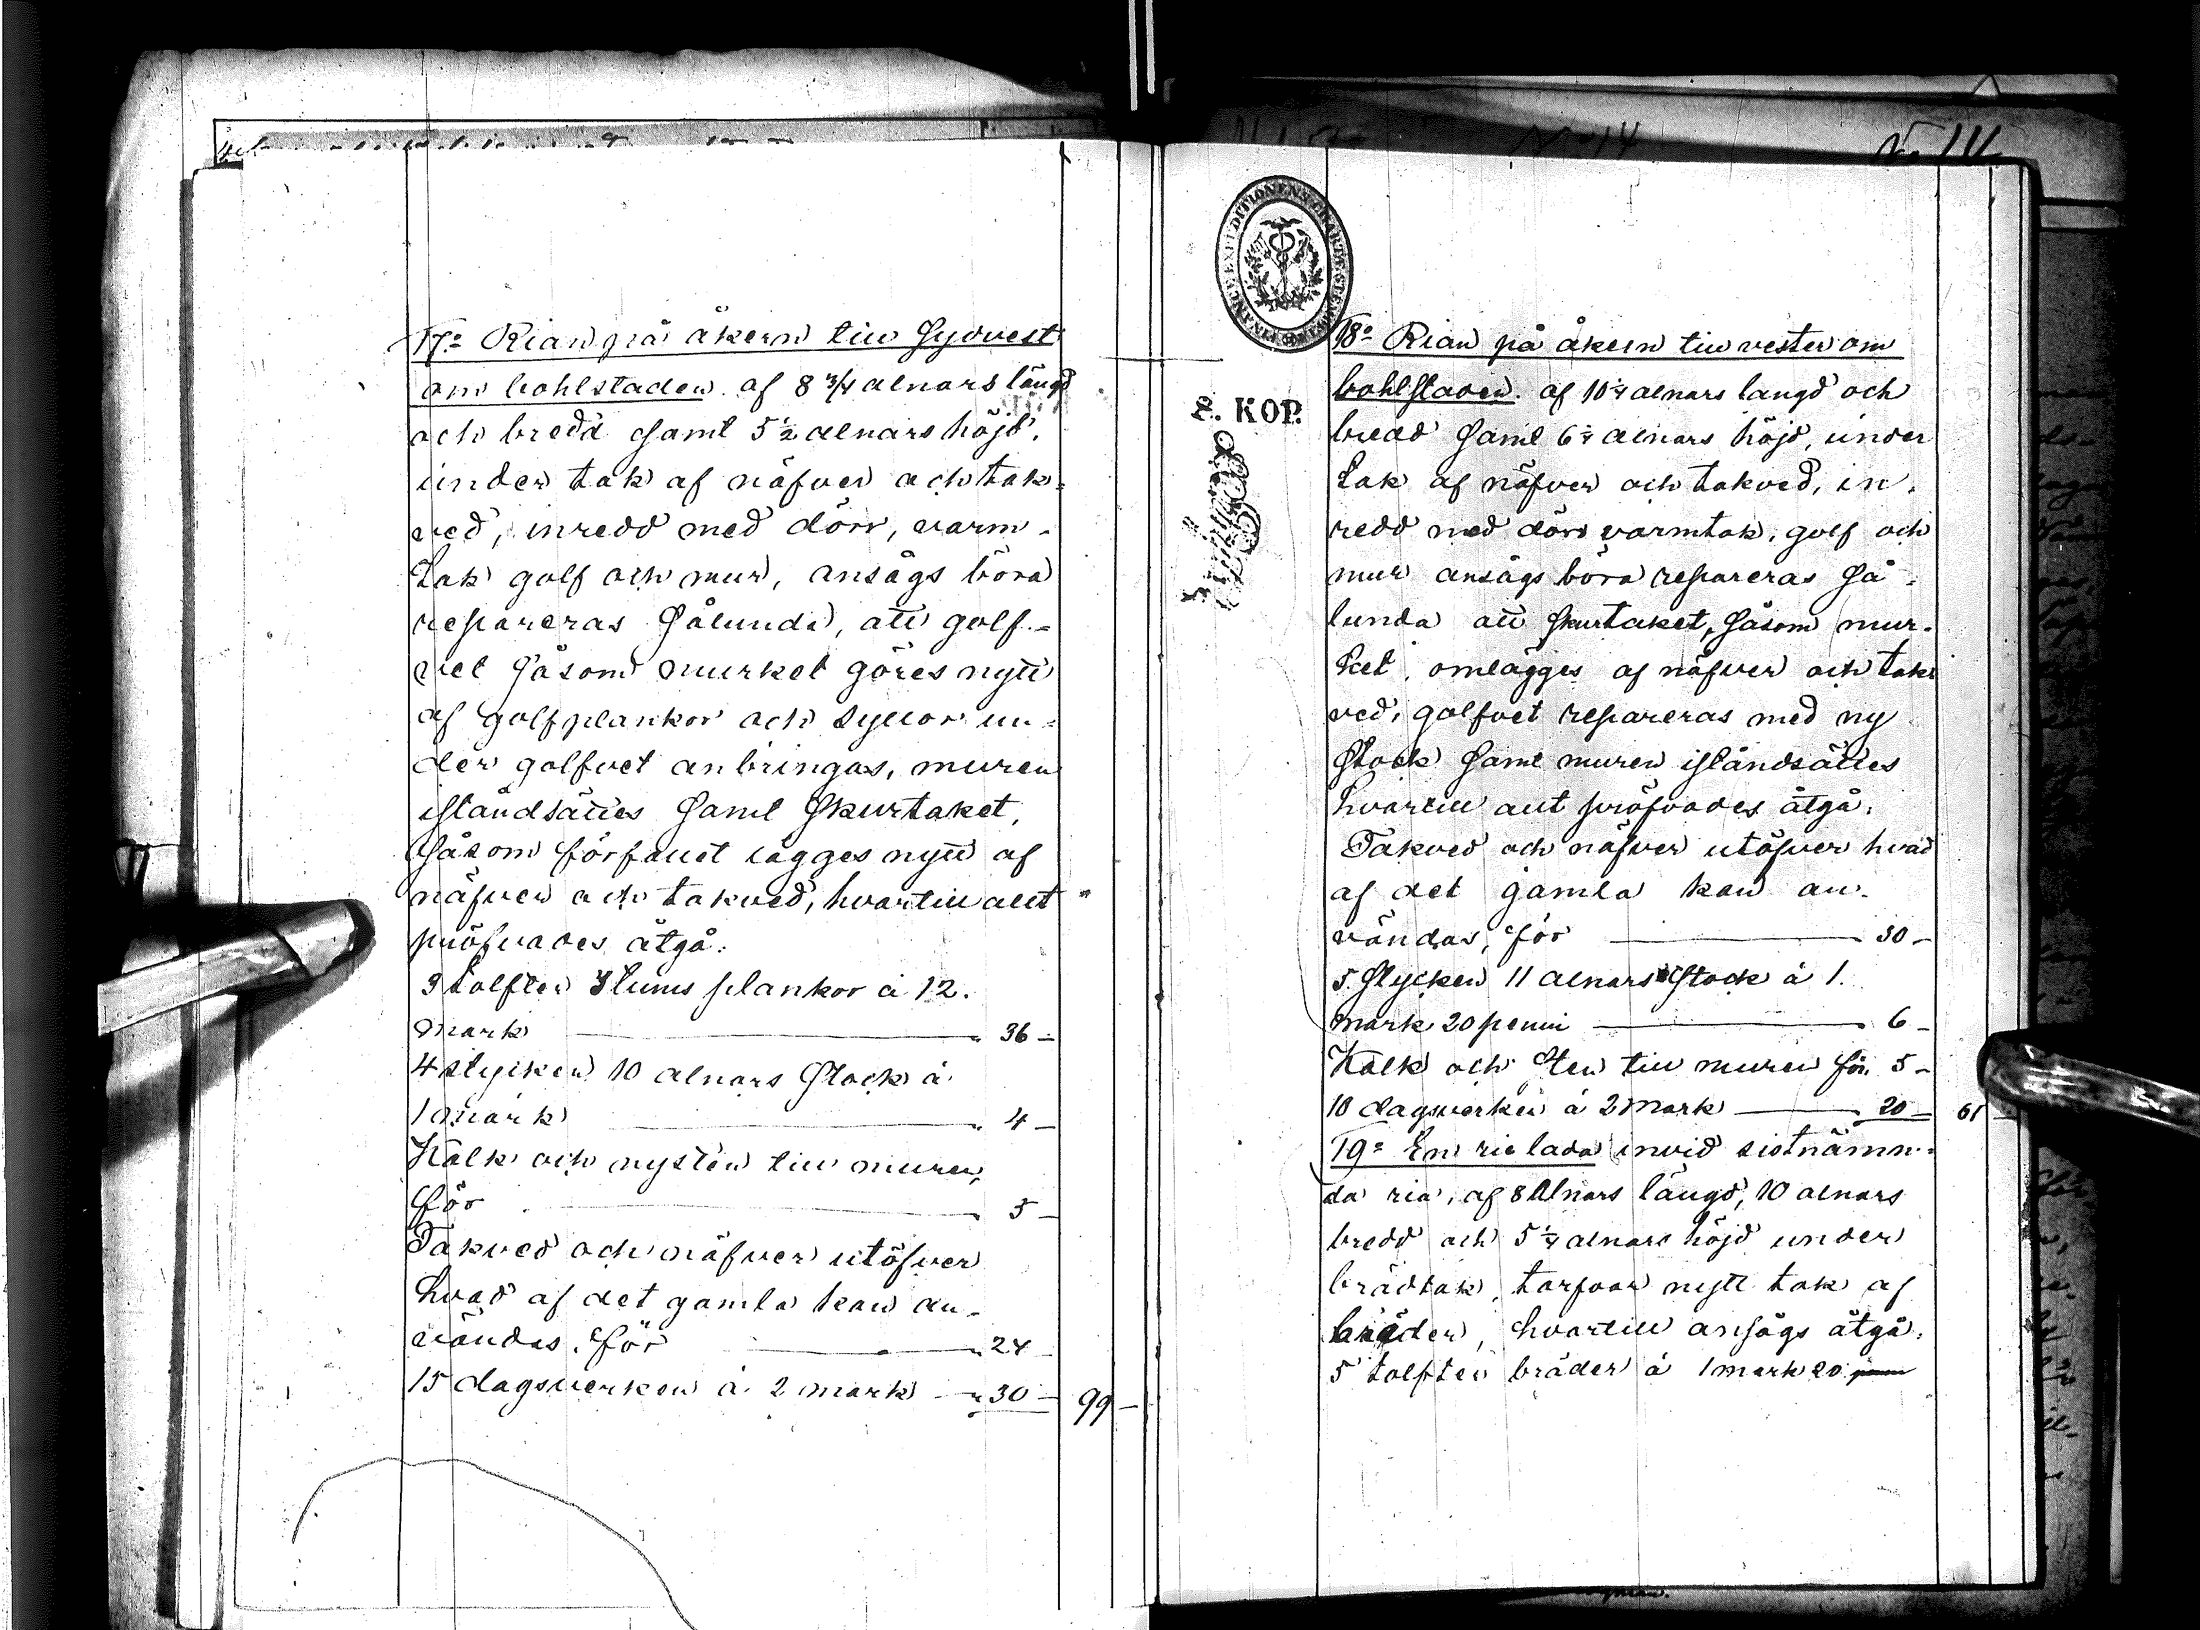 17:o Rian på åkern till Sydvest
om bohlstaden af 8 3/4 alnars längd
och bredd samt 5 1/2 alnars höjd,
under tak af näfver och tak-
ved, inredd med dörr, varm-
tak golf och mur, ansågs böra
repareras sålunda, att golf-
vet såsom murket göres nytt
af golfplankor och syllor un-
der golfvet anbringas, muren
iståndsättes samt skurtaket,
såsom förfallet lägges nytt af
näfver och takved, hvartill allt
pröfvades åtgå:
3 tolfter 3 tums plankor à 12.
mark 36 -
4 stycken 10 alnars stock à
1 mark 4 -
Kalk och nysten till muren,
för 5 -
Takved och näfver utöfver
hvad af det gamla kan an-
vändas, för 24 -
15 dagsverken à 2 mark 30 - 99 -
No 14
FINANCE-EXPEDITIONENS
2. KOP.
18:o Rian på åkern till vester om
bohlstaden af 10 1/4 alnars langd och
bredd samt 6 alnars höjd, under
tak af näfver och takved, in-
redd med dörr varmtak, golf och
mur ansågs böra repareras så-
lunda att skurtaket, såsom mur-
ket, omlägges af näfver och tak
ved, golfvet repareras med ny
stock samt muren iståndsättes
hvartill allt pröfvades åtgå:
Takved och näfver utöfver hvad
af det gamla kan an-
vändas, för 30 -
5 stycken 11 alnars stock à 1.
mark 20 penni 6 -
Kalk och sten till muren för 5 -
10 dagsverken à 2 mark 20 - 61 -
19:o En rie lada invid sistnämn-
da ria, af 8 alnars längd, 10 alnars
bredd och 5 1/4 alnars höjd under
brädtak, tarfvar nytt tak af
bräder, hvartill ansågs åtgå:
5 tolfter bräder à 1 mark 20